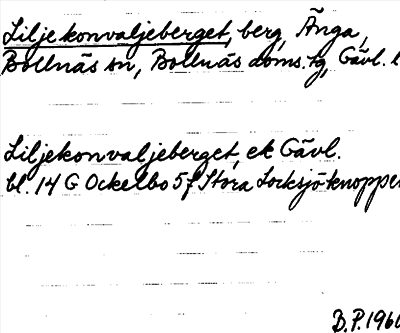 Liljekonvaljeberget, berg, Änga,
Bollnäs sn, Bollnäs doms.tg, Gävl. l
Liljekonvaljeberget, ek Gävl.
bl. 14 G Ockelbo 5f Stora Locksjöknoppen
B.P. 1960